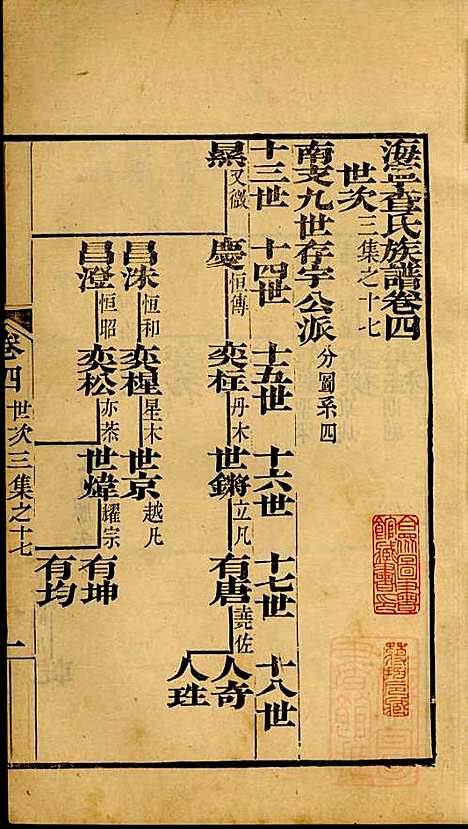 海寧查氏族譜卷四
世次三集之十七
南支九世存宇公派 分圖系四
十三世 十四世 十五世 十六世 十七世 十八世
慶恒傳 奕柱丹木 世鏘立凡 有唐堯佐 人奇
人珄
又微
昌洙恒和 奕楻星木 世京越凡
昌澄恒昭 奕松亦蒼 世煒耀宗 有坤
有均
卷四 世次三集之十七 一